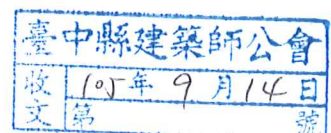 臺中縣建築師公會
收文 105年9月14日
第 號